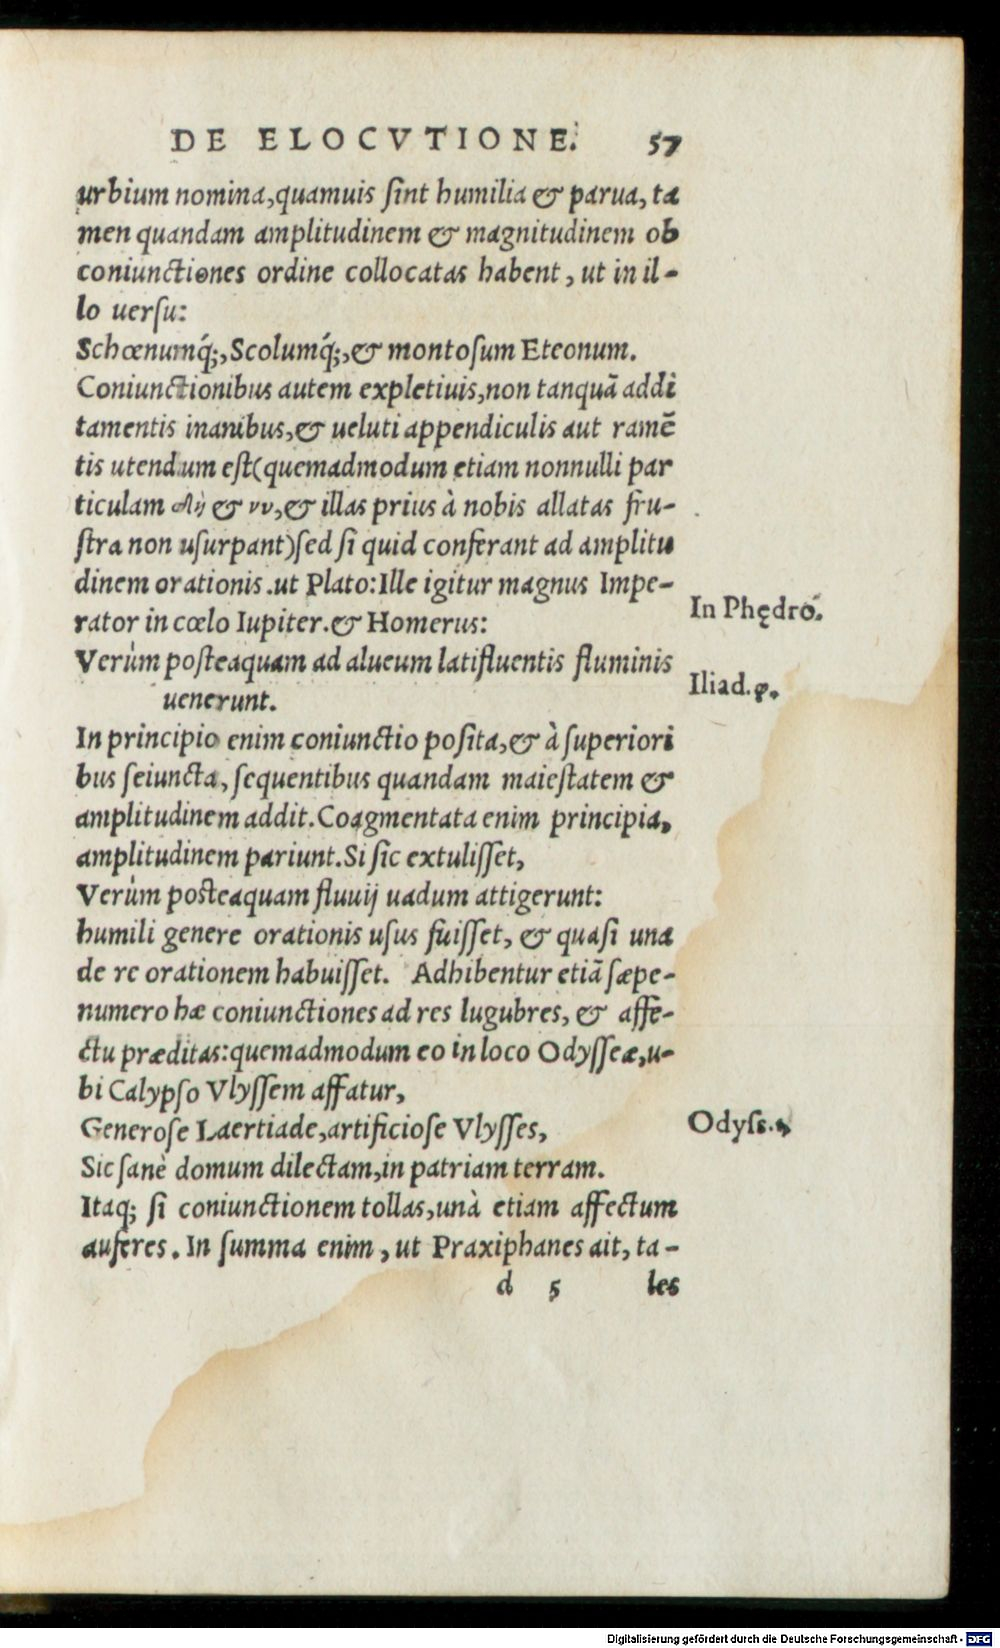 DE ELOCVTIONE. 57
urbium nomina,quamuis ſint humilia & parua, ta
men quandam amplitudinem & magnitudinem ob
coniunctiones ordine collocatas habent, ut in il-
lo uerſu:
Schœnumq́;,Scolumq́;,& montoſum Eteonum.
Coniunctionibus autem expletiuis,non tanquā addi
tamentis inanibus,& ueluti appendiculis aut ramē
tis utendum eſt(quemadmodum etiam nonnulli par
ticulam δὴ & νυ,& illas prius à nobis allatas fru-
ſtra non uſurpant)ſed ſi quid conferant ad amplitu
dinem orationis.ut Plato:Ille igitur magnus Impe-
rator in cœlo Iupiter.& Homerus:
In Phędro.
Verùm poſteaquam ad alueum latifluentis fluminis
Iliad.φ.
uenerunt.
In principio enim coniunctio poſita,& à ſuperiori
bus ſeiuncta, ſequentibus quandam maieſtatem &
amplitudinem addit.Coagmentata enim principia,
amplitudinem pariunt.Si ſic extuliſſet,
Verùm poſteaquam fluuij uadum attigerunt:
humili genere orationis uſus fuiſſet, & quaſi una
de re orationem habuiſſet. Adhibentur etiā ſæpe-
numero hæ coniunctiones ad res lugubres, & affe-
ctu præditas:quemadmodum eo in loco Odyſſeæ,u-
bi Calypſo Vlyſſem affatur,
Generoſe Laertiade,artificioſe Vlyſſes,
Odyſſ.
Sic ſanè domum dilectam,in patriam terram.
Itaq; ſi coniunctionem tollas,unà etiam affectum
auferes. In ſumma enim, ut Praxiphanes ait, ta-
d 5 les
Digitalisierung gefördert durch die Deutsche Forschungsgemeinschaft - DFG